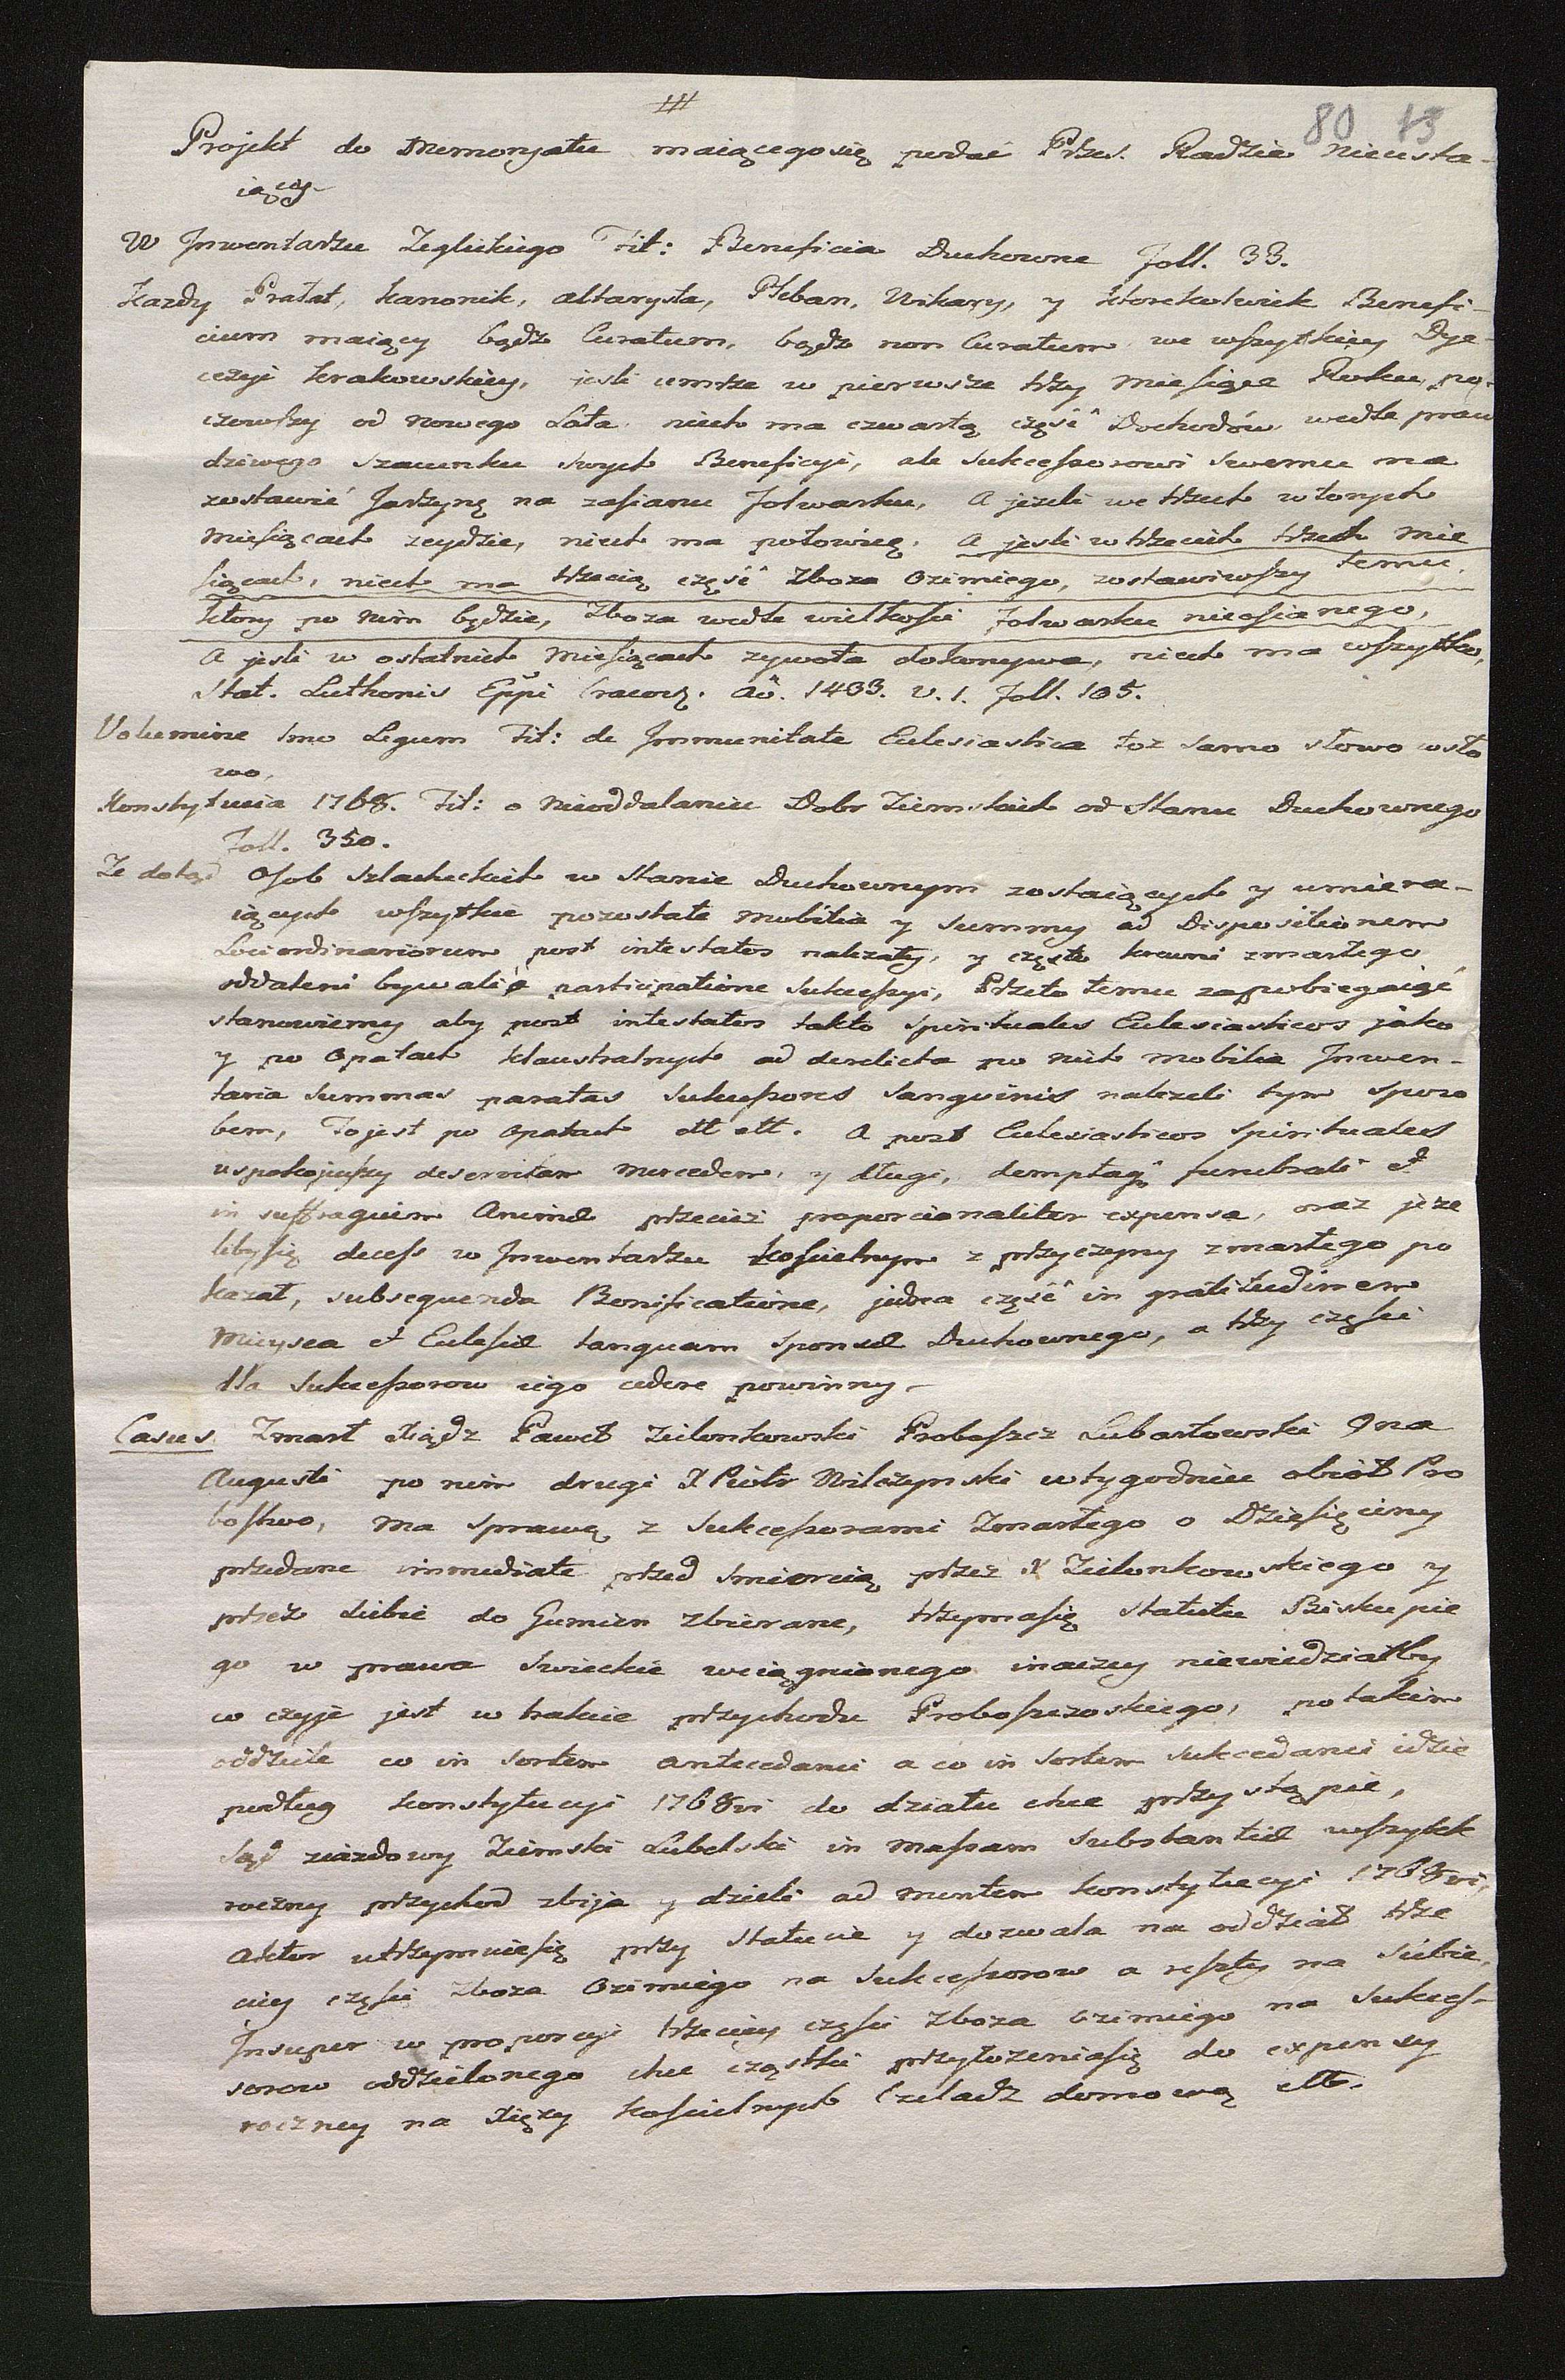 ///
80 13
Projekt do Memoryału maiącegosię podać Przes. Radzie Nieusta-
iącey
W Jnwentarzu Zeglickiego Tit: Beneficia Duchowne foll. 33.
Kazdy Prałat, kanonik, altarysta, Pleban, Wikary, y ktorekolwiek Benefi-
cium maiący bądź Curatum, bądź non Curatum we wszytkiey Dye-
cezyi krakowskiey, jesli umrze w pierwsze trzy Miesiące Roku, po-
czowszy od Nowego Lata niech ma czwartą część Dochodów wedle praw
dziwego szacunku swych Beneficyi, ale sukcessorowi swemu ma
zostawić Jarzynę na zasianu folwarku, A jezeli we trzech wtorych
Miesiącach zeydzie, niech ma połowicę. A jesli w trzecich trzech Mie
siącach, niech ma trzecią część Zboza Ozimiego, zostawiwszy temu,
ktory po nim będzie, Zboza wedle wielkości folwarku nieosianego,
A jesli w ostatnich Miesiącach zywota dokonywa, niech ma wszytko,
Stat. Luthonis Eppi Cracov. Ao. 1433. v. 1. foll. 105.
Volumine Imo Legum Tit: de Jmmunitate Eclesiastica toz samo słowo wsło
wo,
Konstytucia 1768. Tit: o Nieoddalaniu Dobr Ziemskich od Stanu Duchownego
Foll. 350.
Ze dotąd Osob szlacheckich w Stanie Duchownym zostaiących y umiera-
iących wszytkie pozostałe Mobilia y Summy ad Dispositionem
Loci ordinariorum post intestatos nalezały, y często krewni zmarłego
oddaleni bywali a participatione sukcessyi, Przeto temu zapobiegaiąc
stanowiemy aby post intestatos takto Spirituales Eclesiasticos jako
y po Opatach klaustralnych ad derelicta po nich mobilia Jnwen-
taria summas paratas sukcessores sanguinis nalezeli tym sposo
bem, To jest po Opatach ett ett. A post Eclesiasticos Spirituales
uspokoiwszy deservitam mercedem, y długi, demptaq funebrali et
in suffragium Animæ przeciez proporcionaliter expensa, oraz jeze
libysię decess w Jnwentarzu kościelnym z przyczyny zmarłego po
kazał, subsequenda Bonificatione, jedna część in gratitudinem
Mieysca et Eclesiæ tanquam Sponsæ Duchownego, a trzy częsci
dla Sukcessorow iego cedere powinny.-
Casus. Zmarł Xiądz Paweł Zielonkowski Proboszcz Lubartowski 9na
Augusti po nim drugi X Piotr Wilczynski w tygodniu obiął Pro
bostwo, ma sprawę z Sukcessorami Zmarłego o Dziesięciny
przedane immediate przed Smiercią przez X Zielonkowskiego y
przez siebie do Gumien zbierane, trzymasię Statutu Biskupie
go w prawa Swieckie wciągnionego inaczey niewiedziałby
co czyje jest w trakcie przychodu Proboszczoskiego, po takim
oddziele co in sortem antecedanei a co in sortem sukcedanei idzie
podług konstytucyi 1768vi do działu chce przystąpić,
Sąd ziazdowy Ziemski Lubelski in Massam Substantiæ wszytek
roczny przychod zbija y dzieli ad mentem konstytucyi 1768vi,
Aktor utrzymuiesię przy Statucie y dozwala na oddział trze
ciey częsci zboza Ozimiego na Sukcessorow a reszty na Siebie,
Jnsuper w proporcyi trzeciey częsci Zboza ozimiego na Sukces-
sorow oddzielonego chce cząstki przyłozeniasię do expensy
roczney na Xięzy kościelnych Czeladz domową ett.